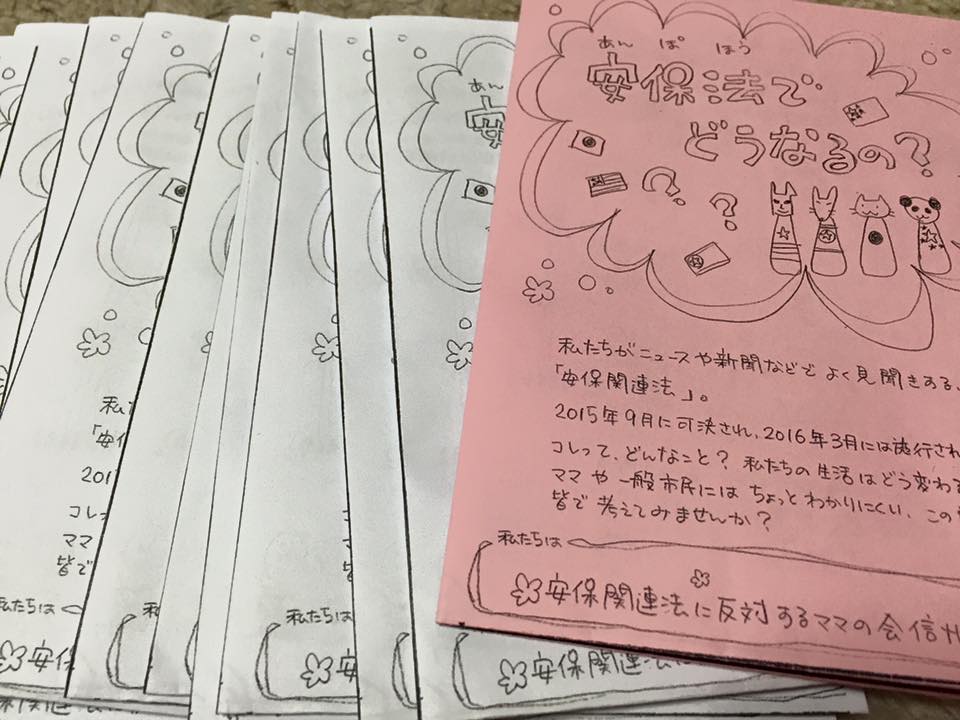 あん ぽ ほう
安保法で
どうなるの?
私たちがニュースや新聞などでよく見聞きする、
「安保関連法」。
2015年9月に可決され、2016年3月には施行され
コレって、どんなこと?私たちの生活はどう変わる
ママや一般市民にはちょっとわかりにくい、この
皆で考えてみませんか?
私たちは
安保関連法に反対するママの会信州
あん
安
私た
「安保
201
コレ
ママ
皆で
私たちは
安保
私たちは
安
安保関連法に